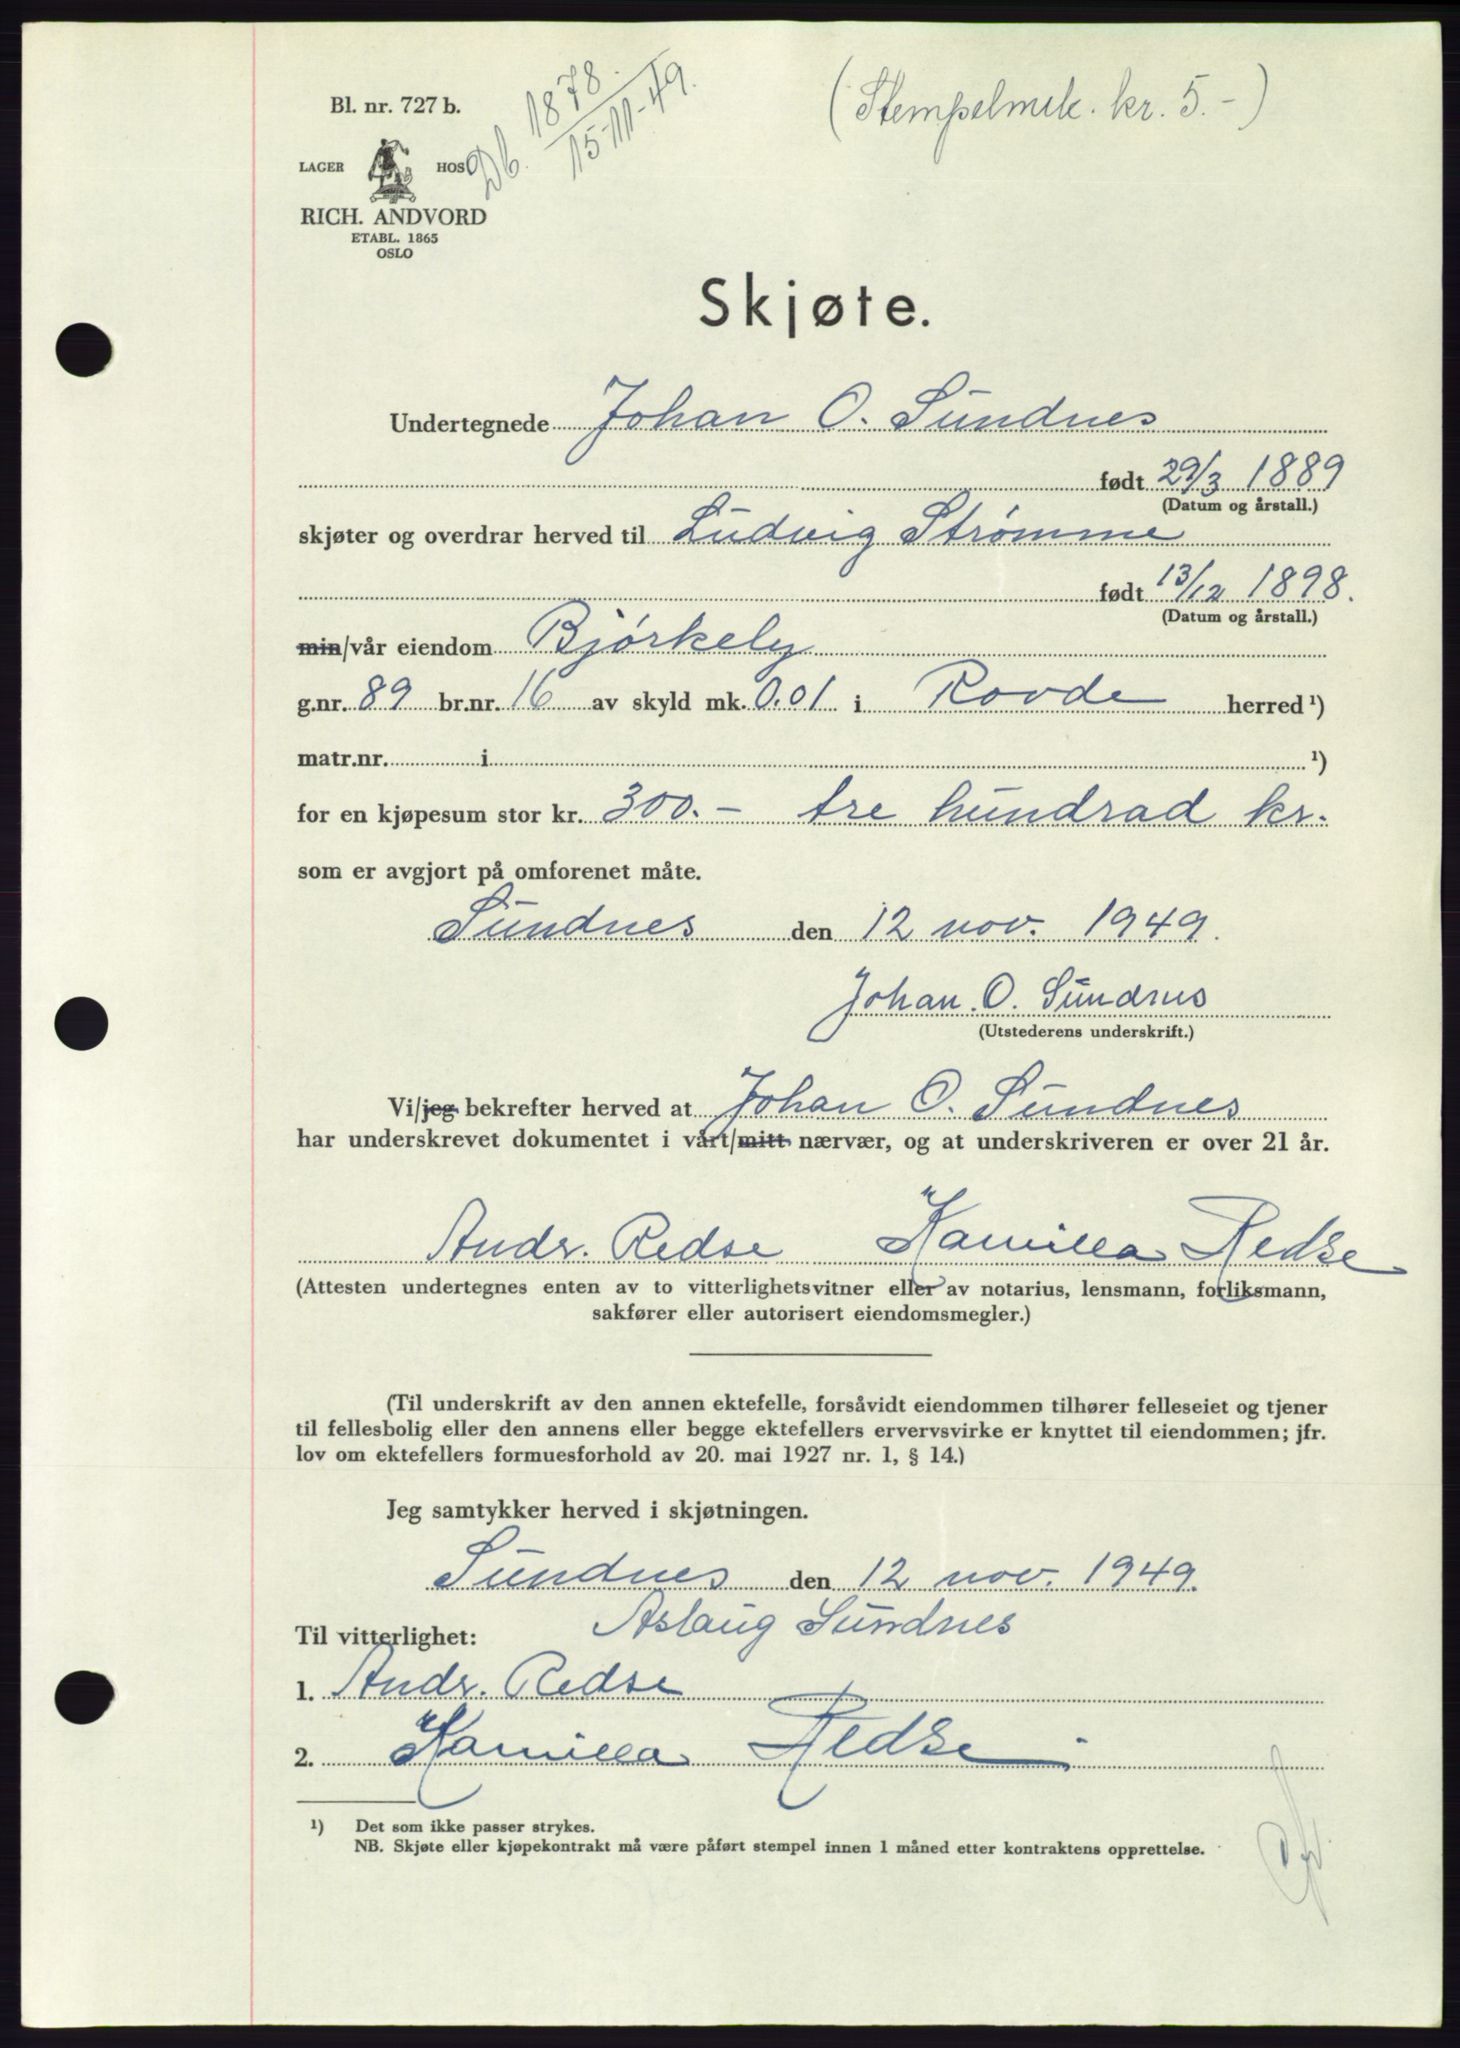 Bl. nr. 727 b.
Db. 1878 / 15-11-49.
(Stempelmrk. kr. 5.-)
LAGER HOS
RICH. ANDVORD
ETABL. 1865
OSLO
Skjøte.
Undertegnede Johan O. Sundnes
født 29/3 1889
(Datum og årstall.)
skjøter og overdrar herved til Ludvig Strømme
født 13/12 1898.
(Datum og årstall.)
min/vår eiendom Bjørkely
g.nr. 89 br.nr. 16 av skyld mk. 0.01 i Rovde herred ¹)
matr.nr. i ¹)
for en kjøpesum stor kr. 300.- tre hundrad kr.
som er avgjort på omforenet måte.
Sundnes den 12 nov. 1949.
Johan. O. Sundnes
(Utstederens underskrift.)
Vi/jeg bekrefter herved at Johan O. Sundnes
har underskrevet dokumentet i vårt/mitt nærvær, og at underskriveren er over 21 år.
Andr. Redse Kamilla Redse
(Attesten undertegnes enten av to vitterlighetsvitner eller av notarius, lensmann, forliksmann,
sakfører eller autorisert eiendomsmegler.)
(Til underskrift av den annen ektefelle, forsåvidt eiendommen tilhører felleseiet og tjener
til fellesbolig eller den annens eller begge ektefellers ervervsvirke er knyttet til eiendommen; jfr.
lov om ektefellers formuesforhold av 20. mai 1927 nr. 1, § 14.)
Jeg samtykker herved i skjøtningen.
Sundnes den 12 nov. 1949.
Aslaug Sundnes
Til vitterlighet:
1. Andr. Redse
2. Kamilla Redse
¹) Det som ikke passer strykes.
NB. Skjøte eller kjøpekontrakt må være påført stempel innen 1 måned etter kontraktens opprettelse.